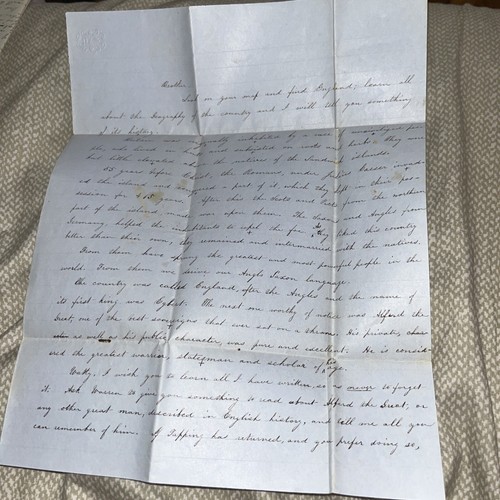 Look on your map and find England; learn all
about the Geography of the country and I will tell you something
of its history.
was originally inhabited by a race of
who lived in and subsisted on and herbs: they were
but little elevated above the natives of the Sandwich islands.
55 years before Christ, the Romans, under Julius Caesar invad-
ed the island and conquered a part of it, which they left in their pos-
session for years. After this the Scots and Picts from the northern
part of the island, made war upon them. The Saxons and Angles from
Germany, helped the inhabitants to repel the foe. As they liked this country
better than their own, they remained and intermarried with the natives.
From them have sprung the greatest and most powerful people in the
world. From them we derive our Anglo Saxon language.
The country was called England, after the Angles and the name of
its first king was Egbert. The next one worthy of notice was Alfred the
Great, one of the best sovereigns that ever sat on a throne. His private, char
as well as his public character, was pure and excellent. He is consid-
ered the greatest warrior, statesman and scholar of his age.
I wish you to learn all I have written so as never to forget
it. Ask Warren to give you something to read about Alfred the Great, or
any other great man, discribed in English history, and tell me all you
can remember of him. If Topping has returned, and you prefer doing so,